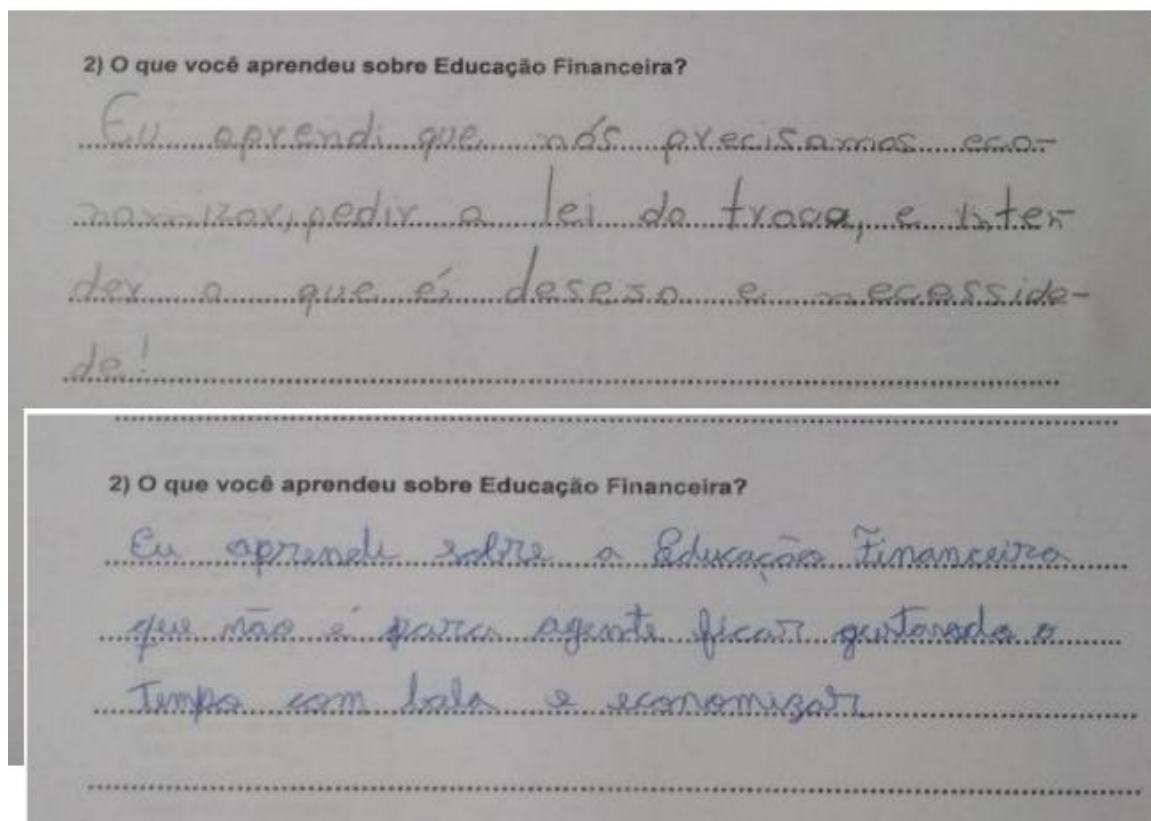 2) O que você aprendeu sobre Educação Financeira?
Eu aprendi que nós precisamos eco-
nomizar, pedir a lei da troca, e inten-
der o que é deseso e necesside-
de!
2) O que você aprendeu sobre Educação Financeira?
Eu aprendi sobre a Educação Financeira
que não é para agente ficar gastando o
Tempo com bala e economizar